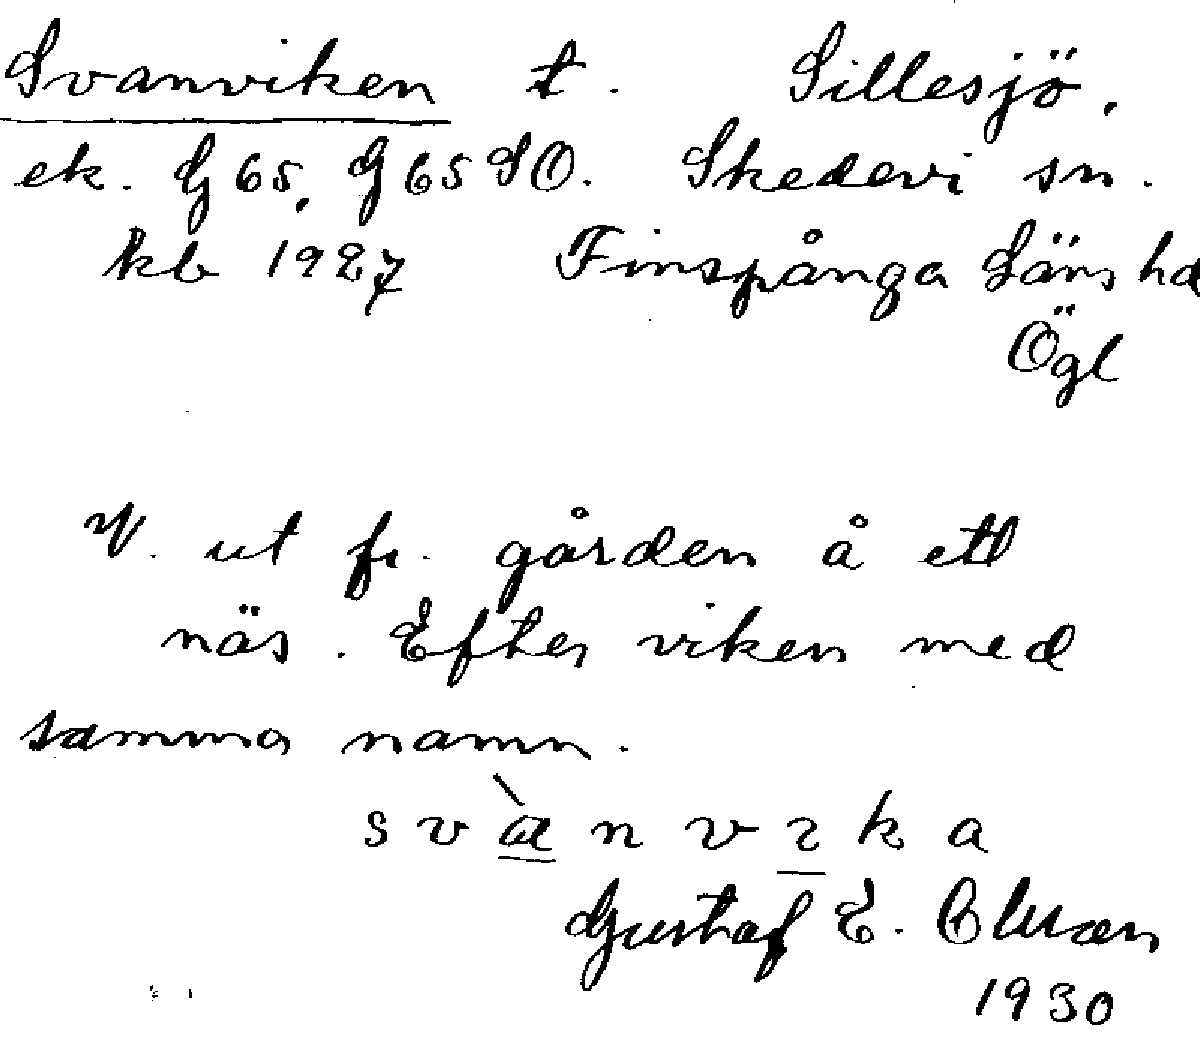 Svanviken t. Sillesjö.
ek. G 65, G 65 SO. Skedevi sn.
kb 1927 Finspånga Läns hd
Ögl
V. ut fr. gården å ett
näs. Efter viken med
samma namn.
svànvika
Gustaf E.
1930